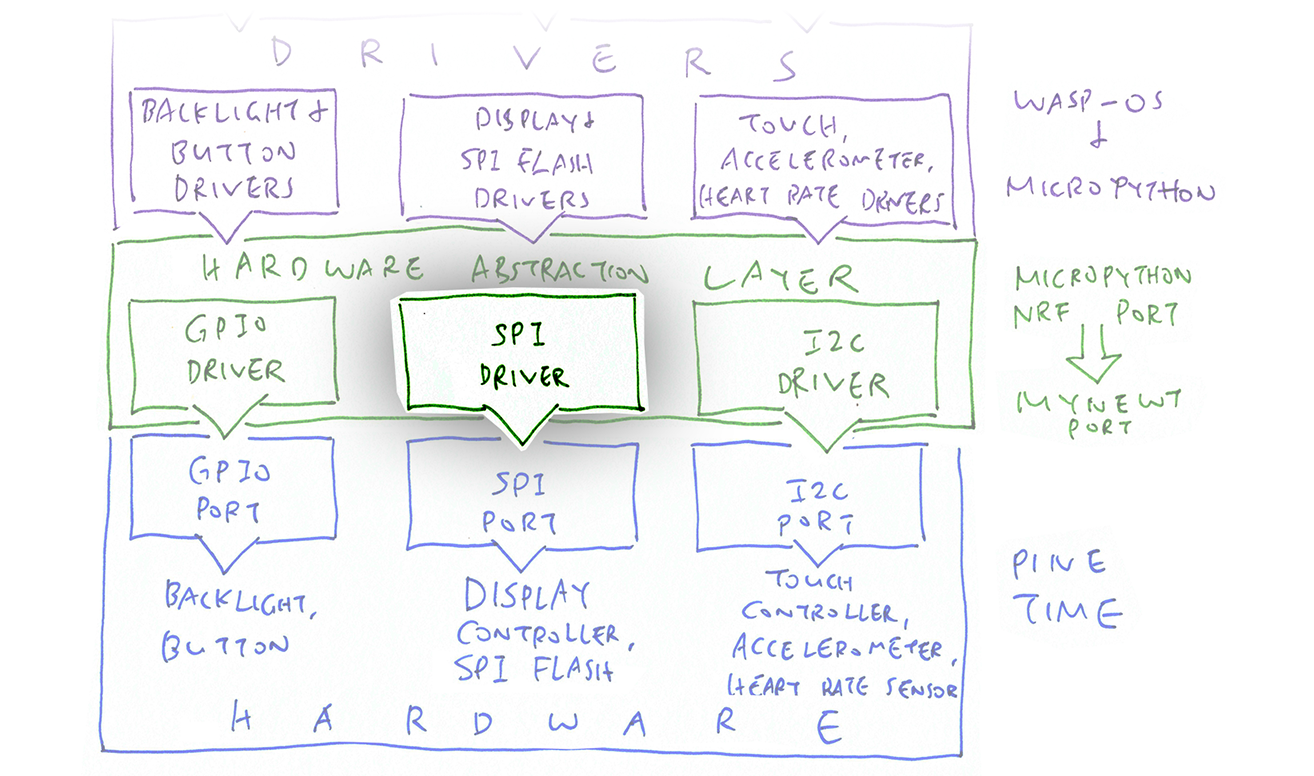 DRIVERS
BACKLIGHT &
BUTTON
DRIVERS
DISPLAY &
SPI FLASH
DRIVERS
TOUCH,
ACCELEROMETER,
HEART RATE DRIVERS
WASP-OS
↓
MICROPYTHON
HARDWARE ABSTRACTION LAYER
GPIO
DRIVER
SPI
DRIVER
I2C
DRIVER
MICROPYTHON
NRF PORT
MYNEWT
PORT
GPIO
PORT
SPI
PORT
I2C
PORT
BACKLIGHT,
BUTTON
DISPLAY
CONTROLLER,
SPI FLASH
TOUCH
CONTROLLER,
ACCELEROMETER,
HEART RATE SENSOR
PINE
TIME
HARDWARE